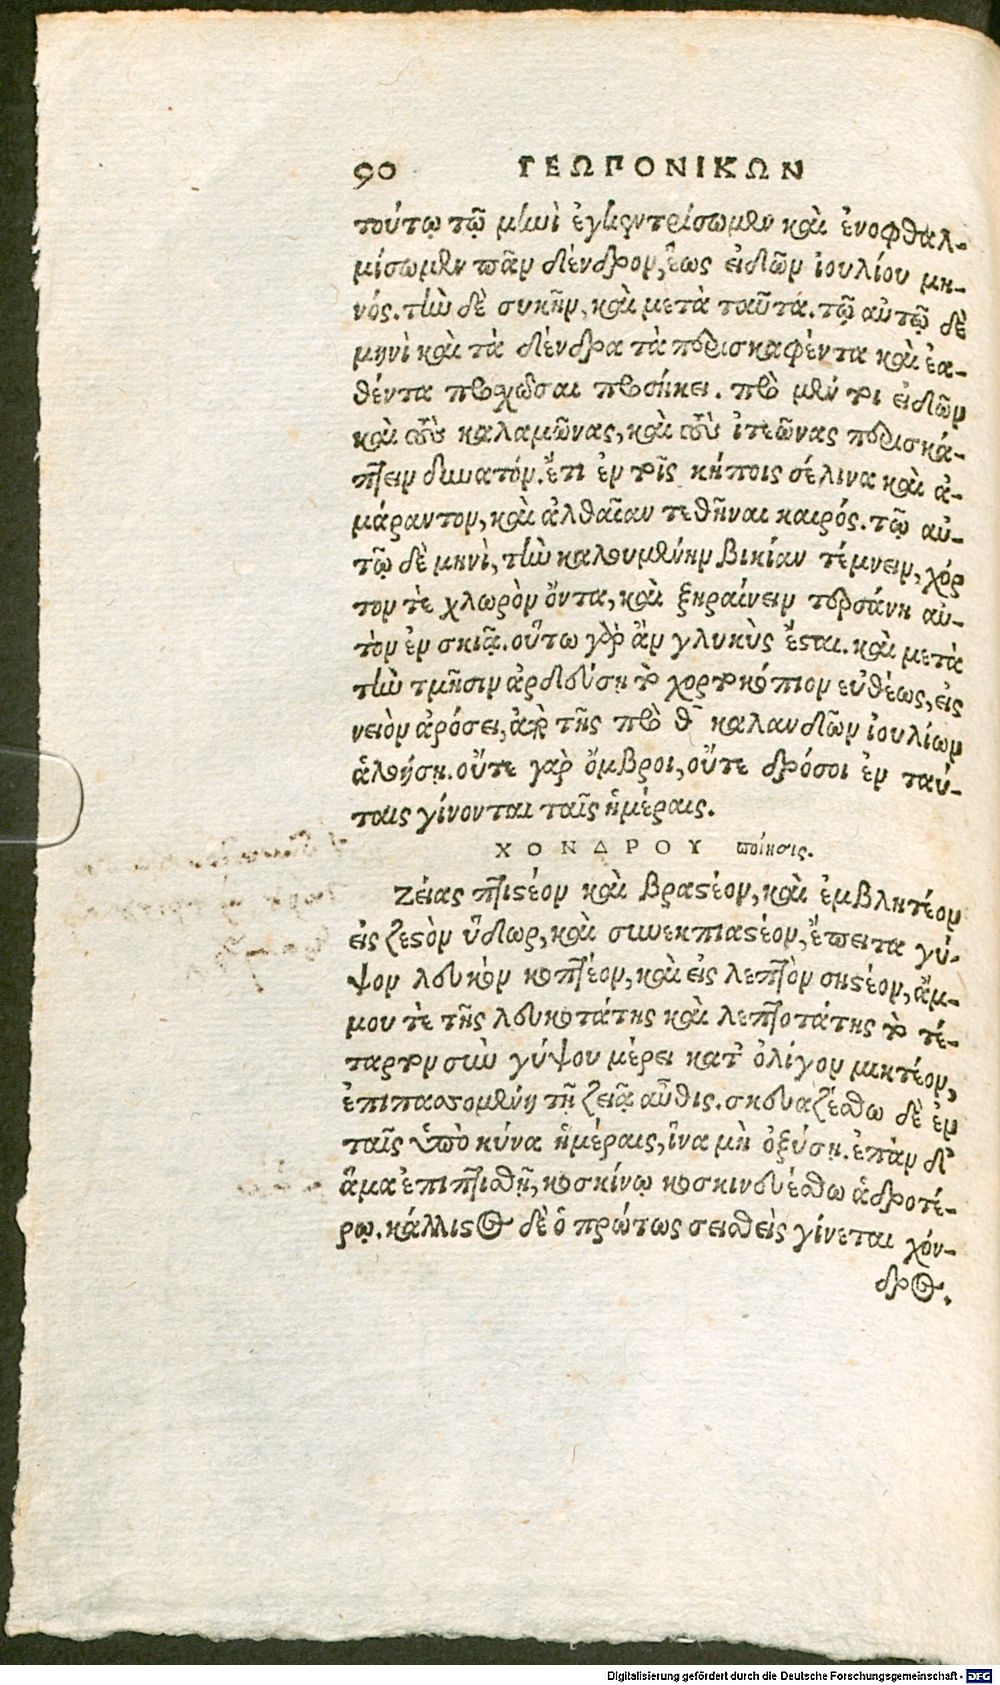 90 ΓΕΩΠΟΝΙΚΩΝ
τούτῳ τῷ μηνὶ ἐγκεντρίσωμεν καὶ ἐνοφθαλ-
μίσωμεν πᾶν δένδρον, ἕως εἰδῶν ἰουλίου μη-
νός. τὴν δὲ συκῆν, καὶ μετὰ ταῦτα. τῷ αὐτῷ δὲ
μηνὶ καὶ τὰ δένδρα τὰ περισκαφέντα καὶ ἐα-
θέντα προχῶσαι προσήκει. πρὸ μέν τοι εἰδῶν
καὶ τοὺς καλαμῶνας, καὶ τοὺς ἰτεῶνας περισκά-
πτειν δυνατόν. ἔτι ἐν τοῖς κήποις σέλινα καὶ ἀ-
μάραντον, καὶ ἀλθαίαν τεθῆναι καιρός. τῷ αὐ-
τῷ δὲ μηνὶ, τὴν καλουμένην βικίαν τέμνειν, χόρ
τον τὲ χλωρὸν ὄντα, καὶ ξηραίνειν τερσάνῃ αὐ-
τὸν ἐν σκιᾷ. οὕτω γὰρ ἂν γλυκὺς ἔσται. καὶ μετὰ
τὴν τμῆσιν ἀρδεύσῃ τὸ χορτοκόπιον εὐθέως, εἰς
νειὸν ἀρόσει, ἀπὸ τῆς πρὸ θ̄ καλανδῶν ἰουλίων
ἁλοήσῃ. οὔτε γὰρ ὄμβροι, οὔτε δρόσοι ἐν ταύ-
ταις γίνονται ταῖς ἡμέραις.
ΧΟΝΔΡΟΥ ποίησις.
Ζέιας πτιστέον καὶ βραστέον, καὶ ἐμβλητέον
εἰς ζεστὸν ὕδωρ, καὶ συνεκπιαστέον, ἔπειτα γύ-
ψον λευκὸν κοπτέον, καὶ εἰς λεπτὸν σηστέον, ἄμ-
μου τὲ τῆς λευκοτάτης καὶ λεπτοτάτης τὸ τέ-
ταρτον σὺν γύψου μέρει κατ' ὀλίγον μικτέον,
ἐπιπασσομένῃ τῇ ζειᾷ αὖθις. σκευαζέσθω δὲ ἐν
ταῖς ὑπὸ κύνα ἡμέραις, ἵνα μὴ ὀξύσῃ. ἐπὰν δ'
ἅμα ἐπιπτισθῇ, κοσκίνῳ κοσκινευέσθω ἁδροτέ-
ρῳ. κάλλιστος δὲ ὁ πρώτως σεισθεὶς γίνεται χόν-
δρος.
Digitalisierung gefördert durch die Deutsche Forschungsgemeinschaft - DFG